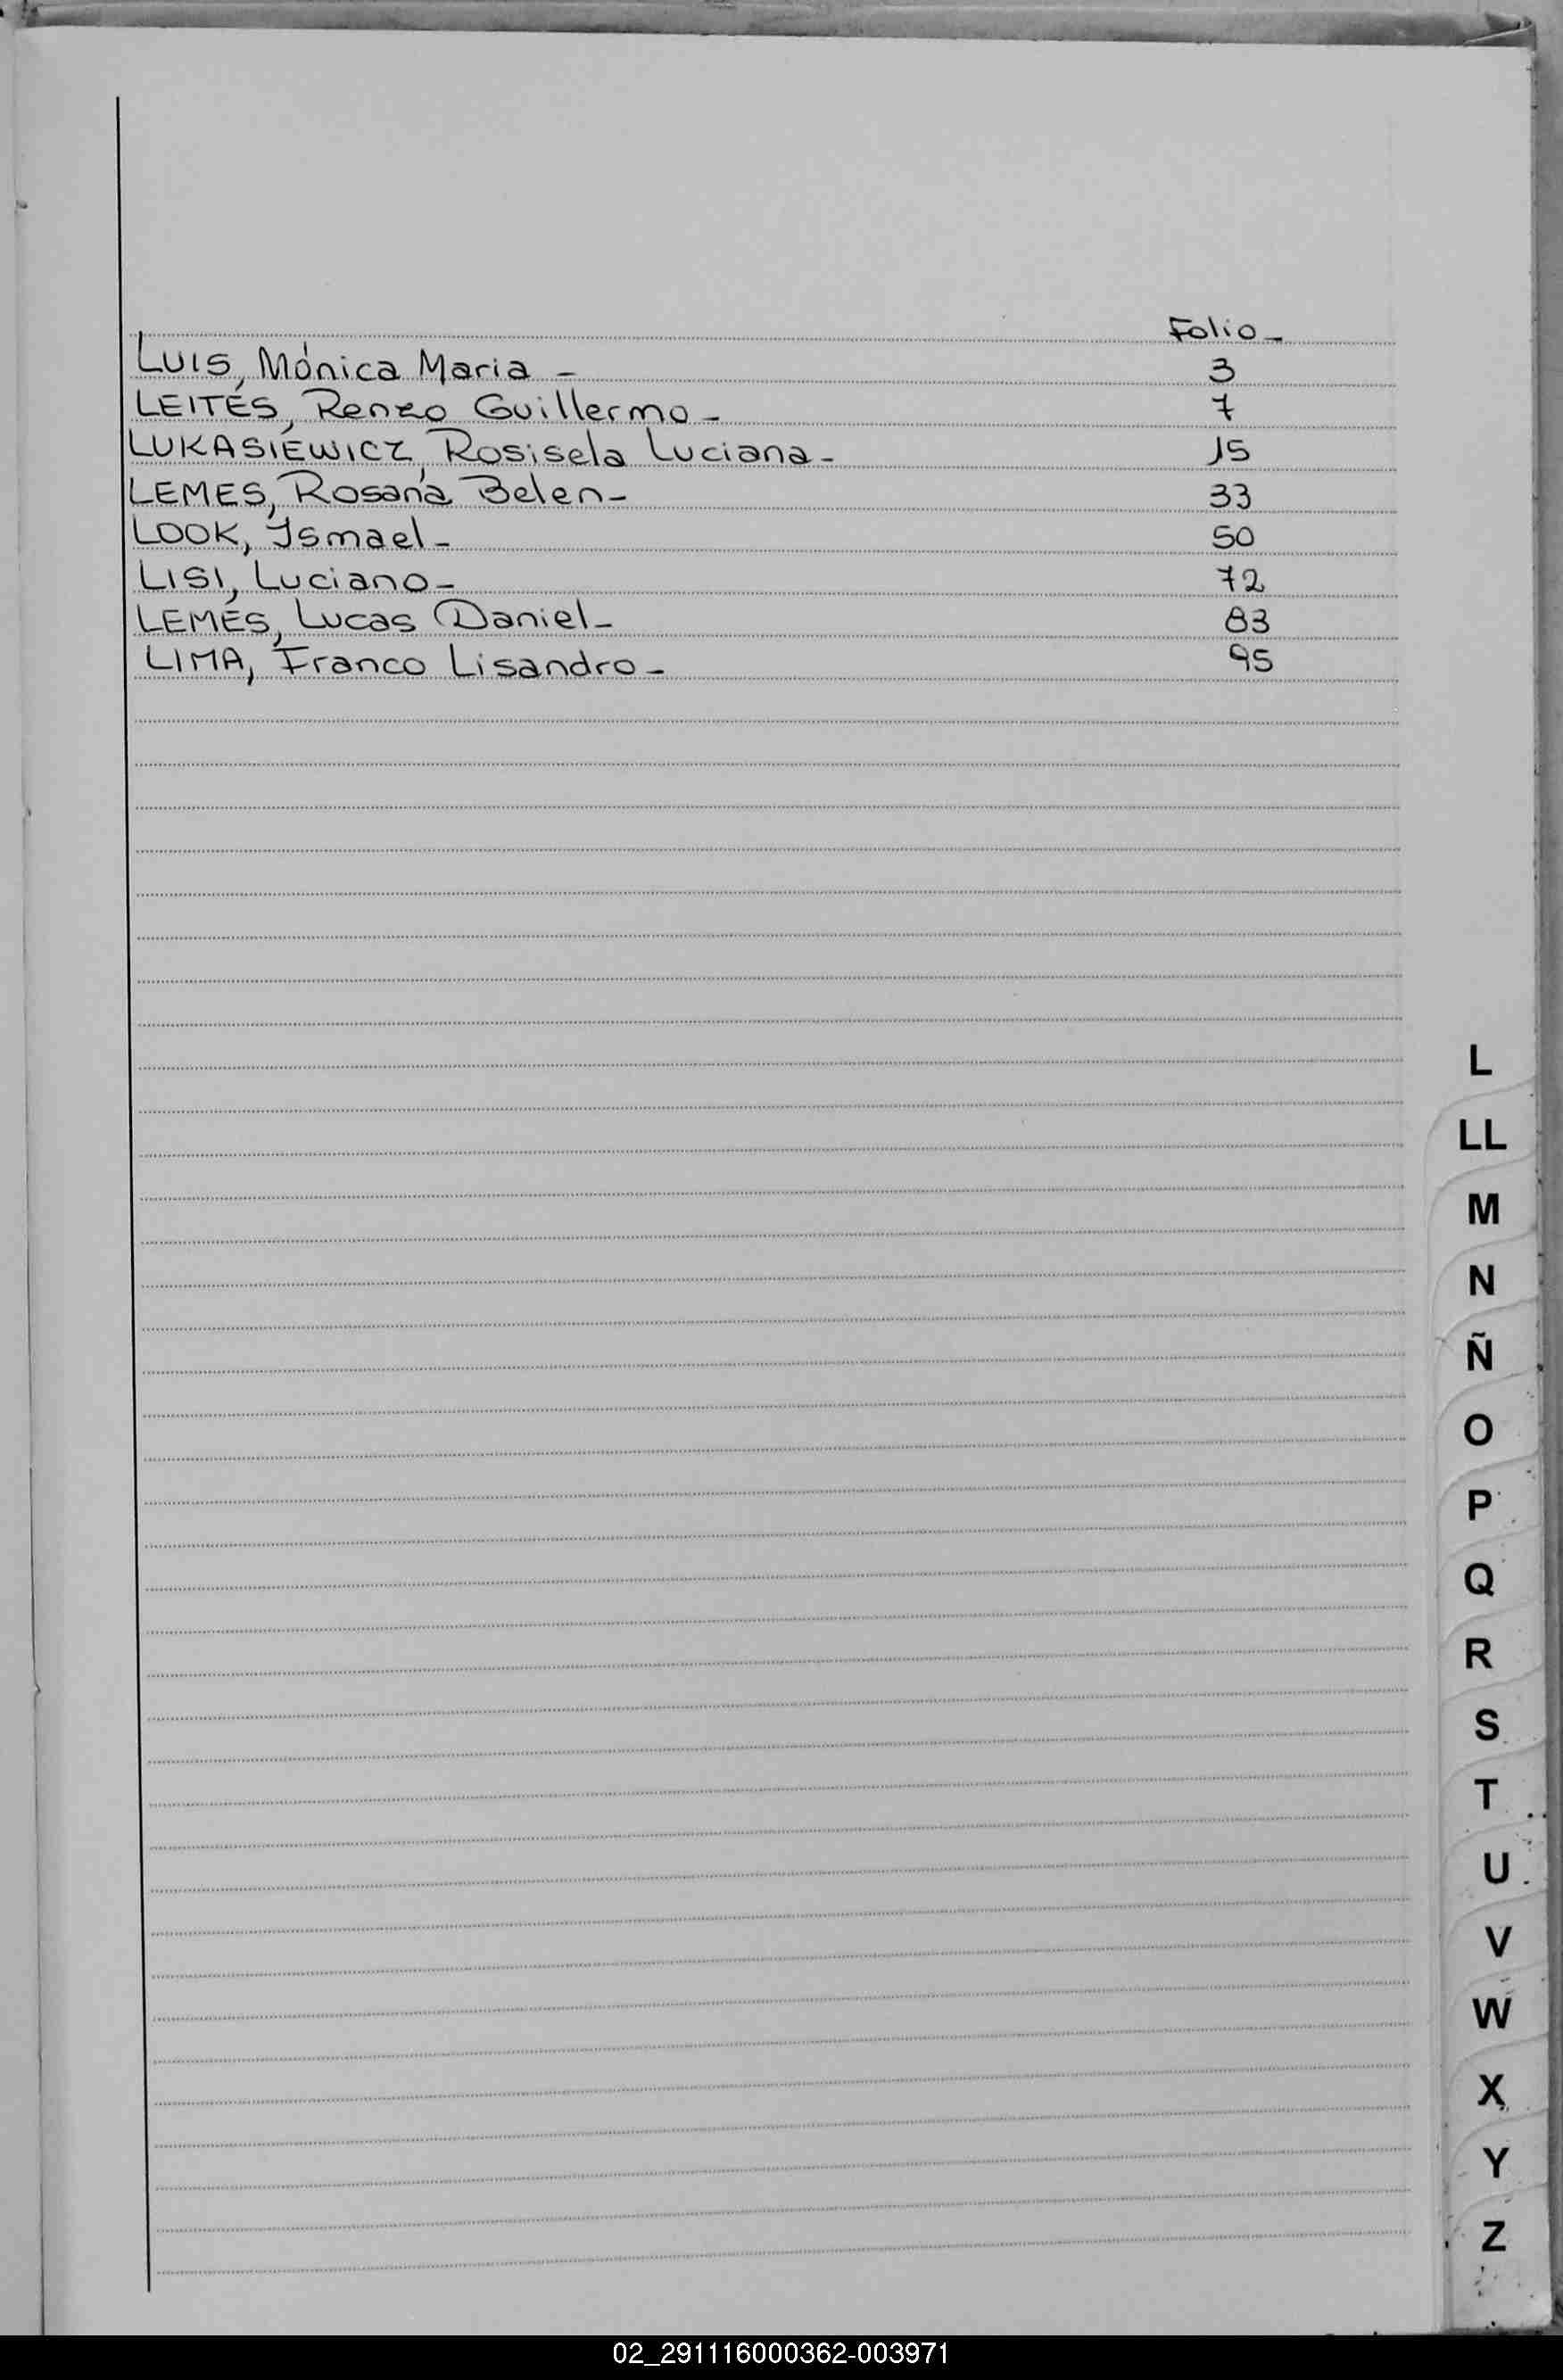 Folio_
LUIS, Mónica Maria - 3
LEITES, Renzo Guillermo - 7
LUKASIEWICZ, Rosisela Luciana - 15
LEMES, Rosana Belen - 33
LOOK, Ismael - 50
LISI, Luciano - 72
LEMES, Lucas Daniel - 83
LIMA, Franco Lisandro - 95
L
LL
M
N
Ñ
O
P
Q
R
S
T
U
V
W
X
Y
Z
02_291116000362-003971